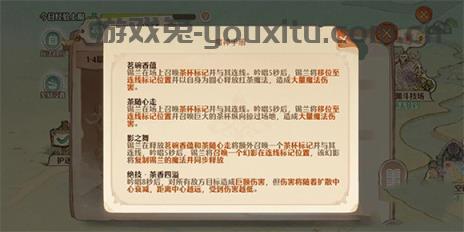 今日经验上限
游戏兔-youxitu.com
茗碗香蕴
锡兰在场上召唤茶杯标记并与其连线。吟唱5秒后，锡兰将移位至
连线标记位置并以自身为圆心释放红茶魔法，造成大量魔法伤
害。
茶随心走
锡兰在场上召唤茶杯标记并与其连线。吟唱5秒后，锡兰将移位至
连线标记位置并召唤巨大的茶杯纵向掠过场地，造成大量魔法伤
害。
影之舞
锡兰在释放茗碗香蕴和茶随心走将额外召唤一个茶杯标记并与其连
线，吟唱5秒后，锡兰将召唤一个幻影在连线标记位置，该幻影
将复制锡兰的魔法并同步释放
绝技·茶香四溢
吟唱8秒后，对所有敌方目标造成巨额伤害，但伤害将随着扩散中
心衰减，距离中心越远，受到伤害越低。
魔斗技场